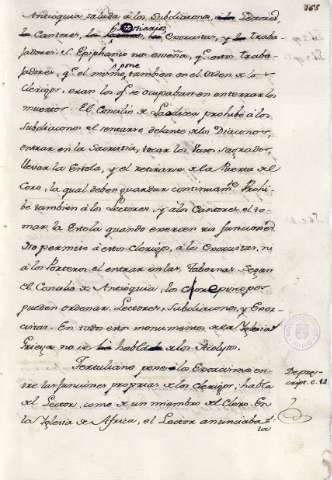 365
Antioquia saluda á los Subdiaconos, á los Lectores,
los Cantores, los Ostiarios los Exorcistas, y los Traba-
jadores. S. Epiphanio nos enseña, q.e estos Traba-
jadores, q.e el mismo pone tambien en el Orden de los
Clerigos, eran los q.e se ocupaban en enterrar los
muertos. El Concilio de Laodicea prohibe á los
Subdiaconos el sentarse delante de los Diaconos,
entrar en la Sacristia, tocar los Vasos sagrados,
llevar la Estola, y el retirarse de la Puerta del
Coro, la qual deben guardar continuam.te Prohi-
be tambien á los Lectores, y á los Cantores el to-
mar la Estola quando exercen sus funciones.
No permite á estos Clerigos, á los Exorcistas, ni
á los Porteros el entrar en las Tabernas. Segun
el Concilio de Antioquia, los Chorepiscopos
pueden ordenar Lectores, Subdiaconos, y Exor-
cistas. En todos estos monumentos de la Iglesia
Griega no se habla de los Acolytos.
Tertuliano pone la Exorcismos en-
tre las funciones proprias de los Clerigos, habla
del Lector, como de un miembro del Clero. En
la Iglesia de Africa, el Lector anunciaba
los
De præs-
cript. c. 41